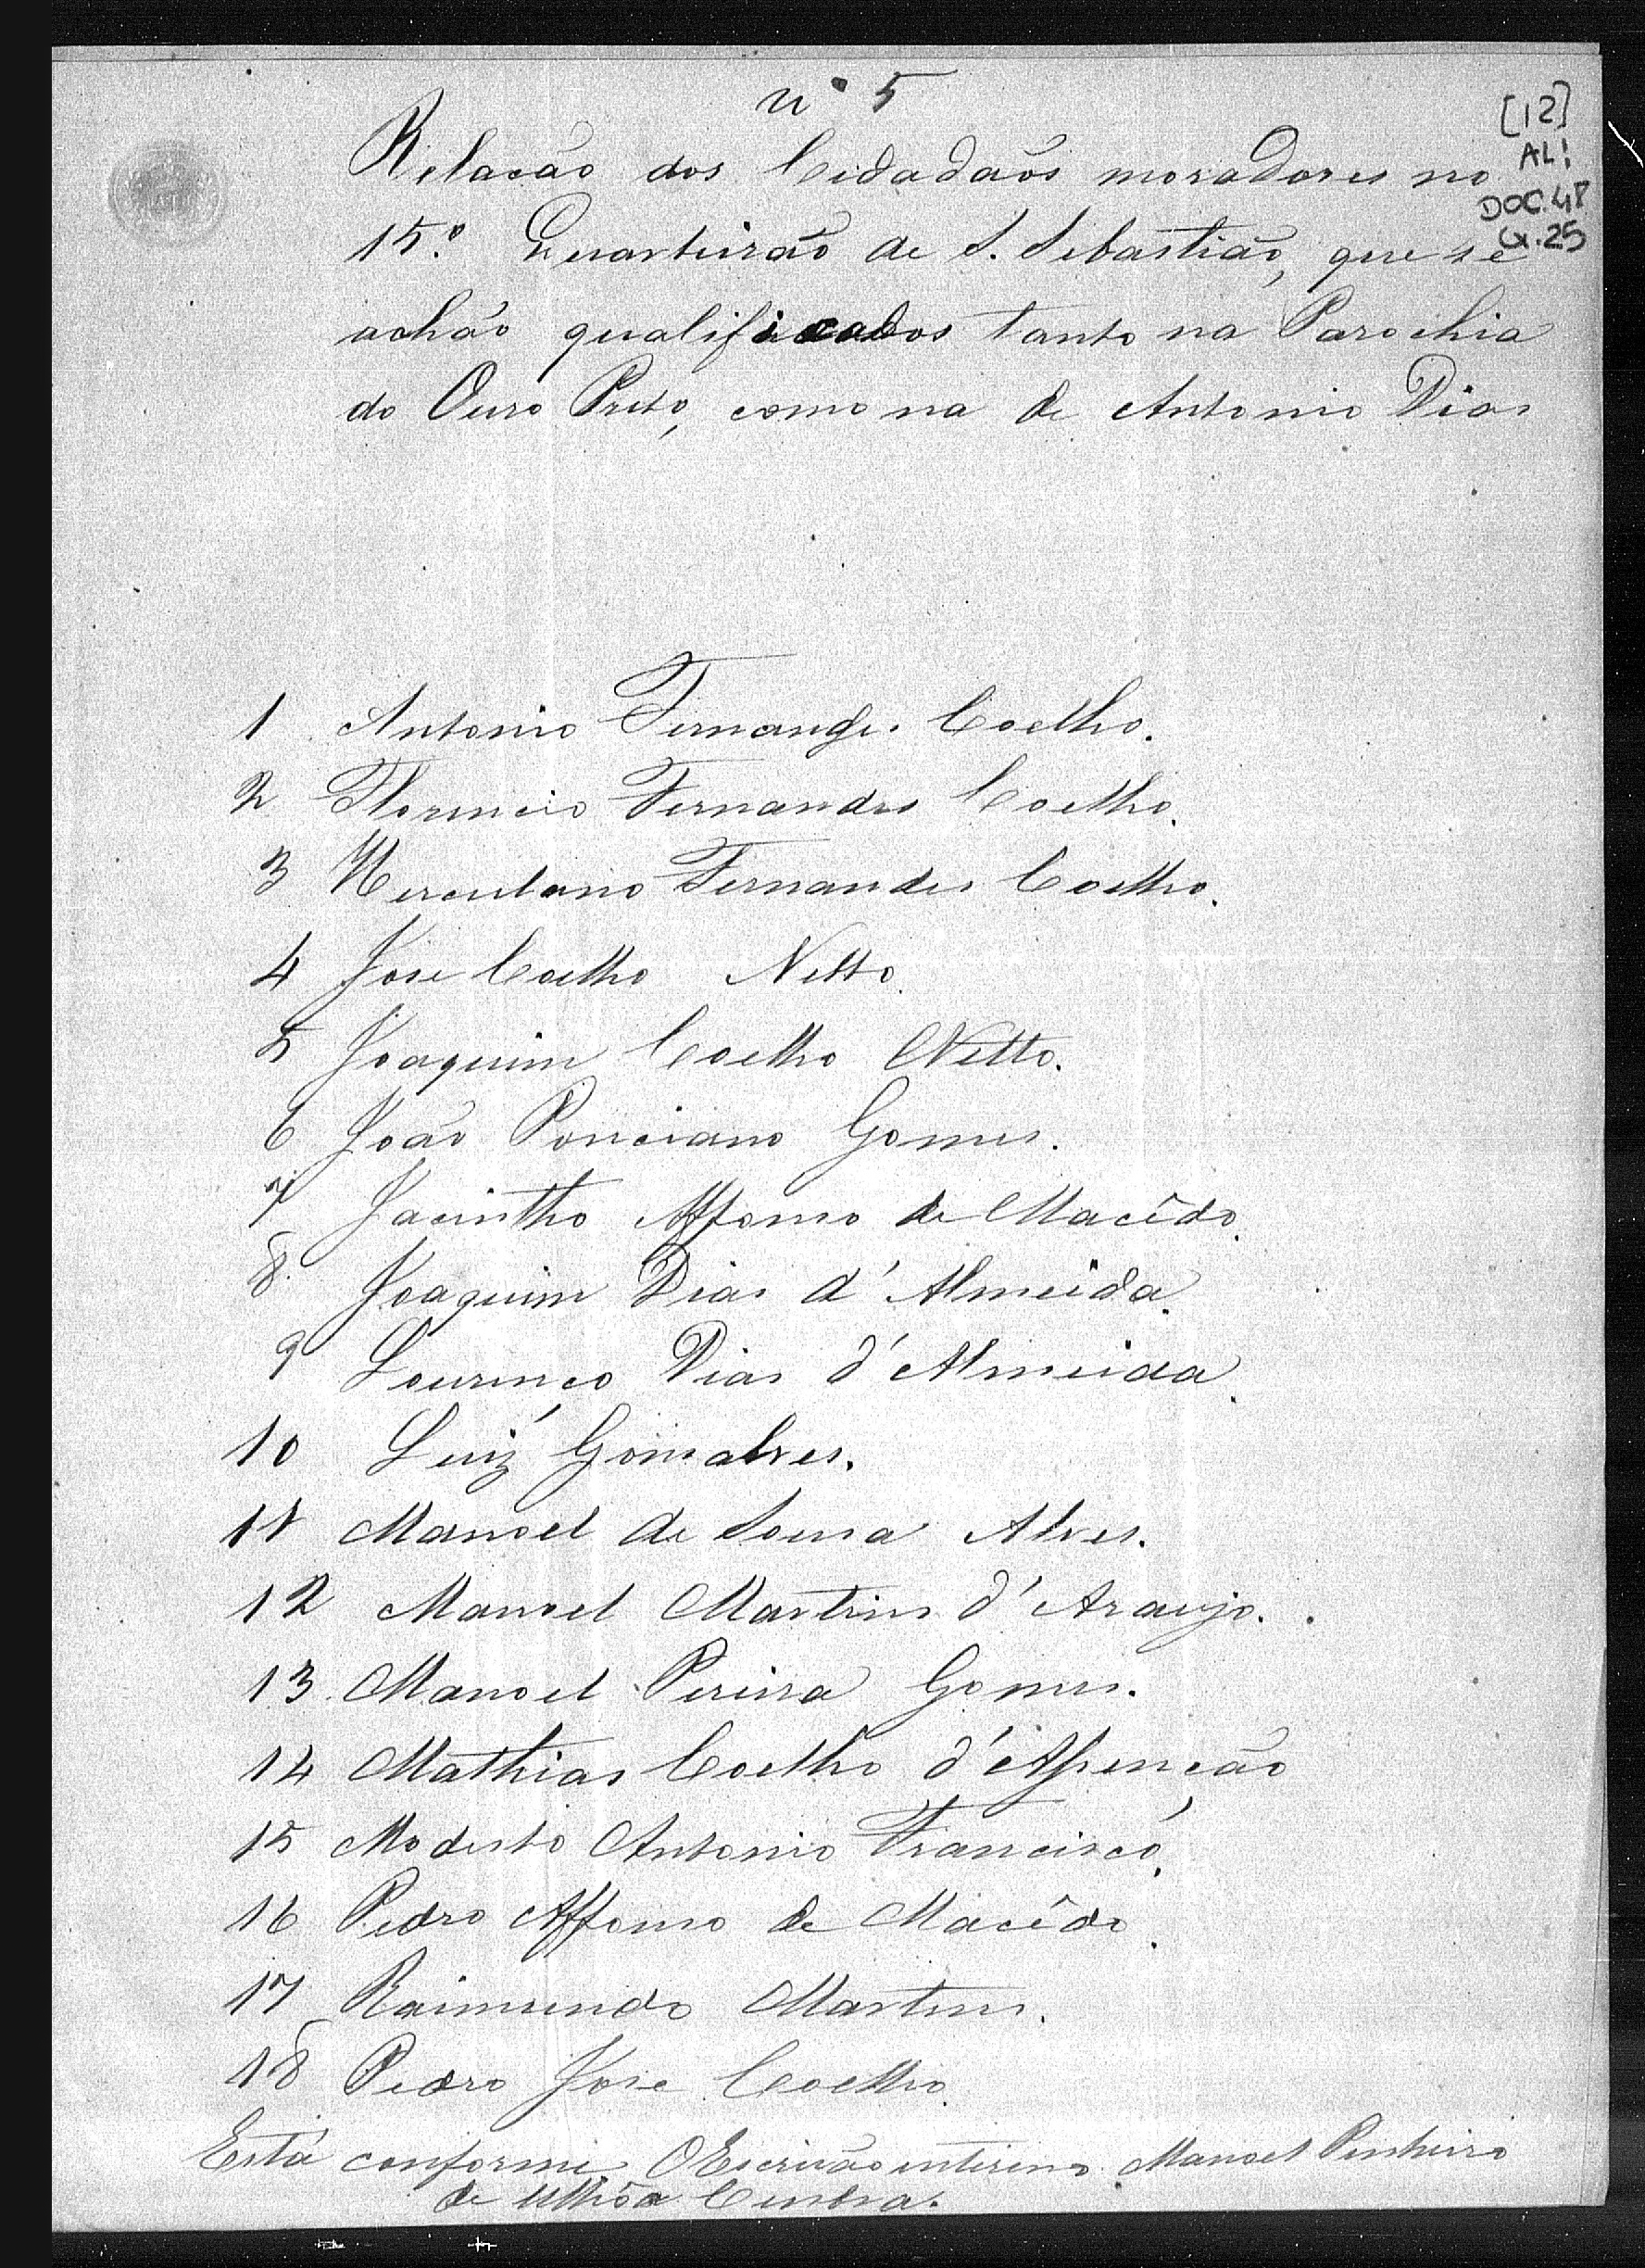 n° 5
[12]
AL!
DOC. 48
G. 25
Relacão dos Cidadaõs moradores no
15.° Quarteirão de S. Sebastião, que se
achão qualificados tanto na Parochia
do Ouro Preto, como na de Antonio Dias
1 Antonio Fernandes Coelho.
2 Florencio Fernandes Coelho.
3 Herculano Fernandes Coelho.
4 Jose Coelho Netto.
5 Joaquim Coelho Netto.
6 João Ponciano Gomes.
7 Jacintho Affonso de Macêdo.
8 Joaquim Dias d'Almeida.
9 Lourenço Dias d'Almeida.
10 Luiz Gonsalves.
11 Manoel de Sousa Alves.
12 Manoel Martins d'Araujo.
13 Manoel Pereira Gomes.
14 Mathias Coelho d'Assenção
15 Modesto Antonio Francisco.
16 Pedro Affonso de Macêdo.
17 Raimundo Martins.
18 Pedro Jose Coelho.
Está conforme O Escrivão interino Manoel Pinheiro
de Ulhôa Cintra.